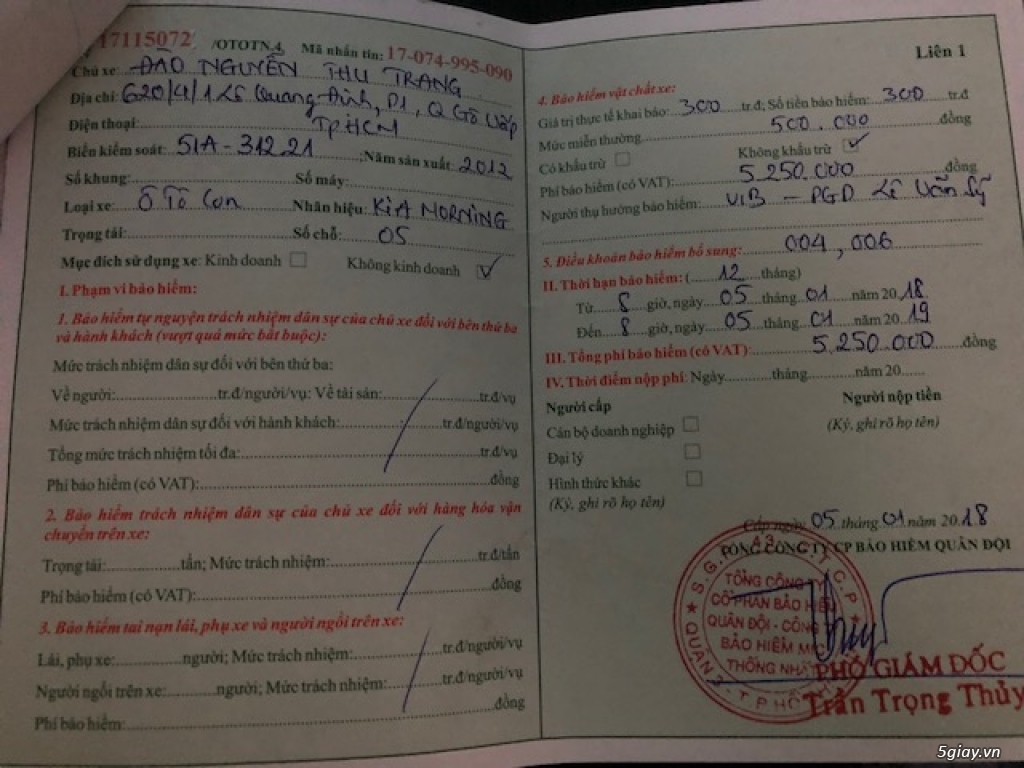 17115072 /OTOTN.4 Mã nhắn tin: 17-074-995-090
Chủ xe: ĐÀO NGUYỄN THU TRANG
Địa chỉ: 620/4/1 Lê Quang Định, P1, Q Gò Vấp
TPHCM
Điện thoại:
Biển kiểm soát: 51A-312.21 ;Năm sản xuất: 2012
Số khung: Số máy:
Loại xe: Ô Tô Con Nhãn hiệu: KIA MORNING
Trọng tải: Số chỗ: 05
Mục đích sử dụng xe: Kinh doanh Không kinh doanh
I. Phạm vi bảo hiểm:
1. Bảo hiểm tự nguyện trách nhiệm dân sự của chủ xe đối với bên thứ ba
và hành khách (vượt quá mức bắt buộc):
Mức trách nhiệm dân sự đối với bên thứ ba:
Về người: tr.đ/người/vụ: Về tài sản: tr.đ/vụ
Mức trách nhiệm dân sự đối với hành khách: tr.đ/người/vụ
Tổng mức trách nhiệm tối đa: tr.đ/vụ
Phí bảo hiểm (có VAT): đồng
2. Bảo hiểm trách nhiệm dân sự của chủ xe đối với hàng hóa vận
chuyển trên xe:
Trọng tải: tấn; Mức trách nhiệm: tr.đ/tấn
Phí bảo hiểm (có VAT): đồng
3. Bảo hiểm tai nạn lái, phụ xe và người ngồi trên xe:
Lái, phụ xe: người; Mức trách nhiệm: tr.đ/người/vụ
Người ngồi trên xe: người; Mức trách nhiệm: tr.đ/người/vụ
Phí bảo hiểm: đồng
Liên 1
4. Bảo hiểm vật chất xe:
Giá trị thực tế khai báo: 300 tr.đ; Số tiền bảo hiểm: 300 tr.đ
Mức miễn thường: 500.000 đồng
Có khấu trừ Không khấu trừ
Phí bảo hiểm (có VAT): 5.250.000 đồng
Người thụ hưởng bảo hiểm: VIB - PGD Lê Văn Sỹ
5. Điều khoản bảo hiểm bổ sung: 004, 006
II. Thời hạn bảo hiểm: ( 12 tháng)
Từ 8 giờ, ngày 05 tháng 01 năm 2018
Đến 8 giờ, ngày 05 tháng 01 năm 2019
III. Tổng phí bảo hiểm (có VAT): 5.250.000 đồng
IV. Thời điểm nộp phí: Ngày tháng năm 20
Người cấp Người nộp tiền
Cán bộ doanh nghiệp (Ký, ghi rõ họ tên)
Đại lý
Hình thức khác
(Ký, ghi rõ họ tên)
Cấp ngày 05 tháng 01 năm 2018
TỔNG CÔNG TY CP BẢO HIỂM QUÂN ĐỘI
TỔNG CÔNG TY
CỔ PHẦN BẢO HIỂM
QUÂN ĐỘI - CÔNG TY
BẢO HIỂM MIC
THỐNG NHẤT
PHÓ GIÁM ĐỐC
Trần Trọng Thủy
5giay.vn